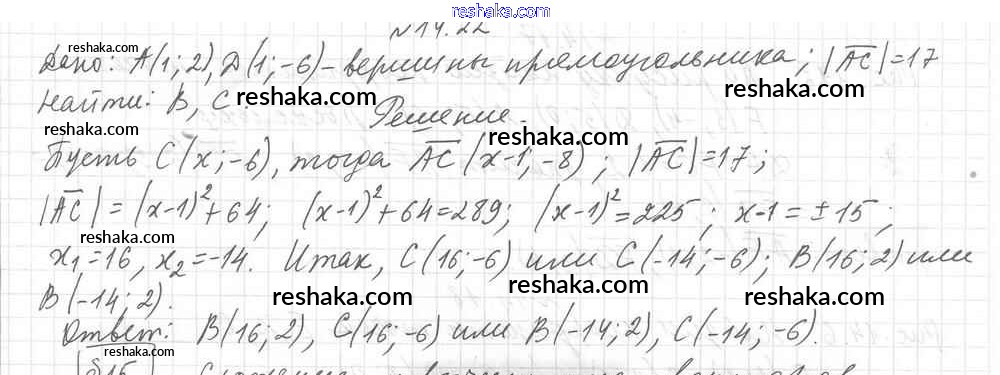 www.reshaka.com
№14.22
reshaka.com
Дано: A(1; 2), D(1; -6) - вершины прямоугольника; |AC| = 17
reshaka.com
Найти: B, C.
reshaka.com reshaka.com
Решение.
reshaka.com reshaka.com
Пусть C(x; -6), тогда AC (x-1; -8); |AC| = 17;
reshaka.com
|AC| = (x-1)² + 64; (x-1)² + 64 = 289; (x-1)² = 225; x-1 = ±15;
reshaka.com
x₁ = 16, x₂ = -14. Итак, C(16; -6) или C(-14; -6); B(16; 2) или
B(-14; 2).
reshaka.com reshaka.com
Ответ: B(16; 2), C(16; -6) или B(-14; 2), C(-14; -6).
reshaka.com
§15